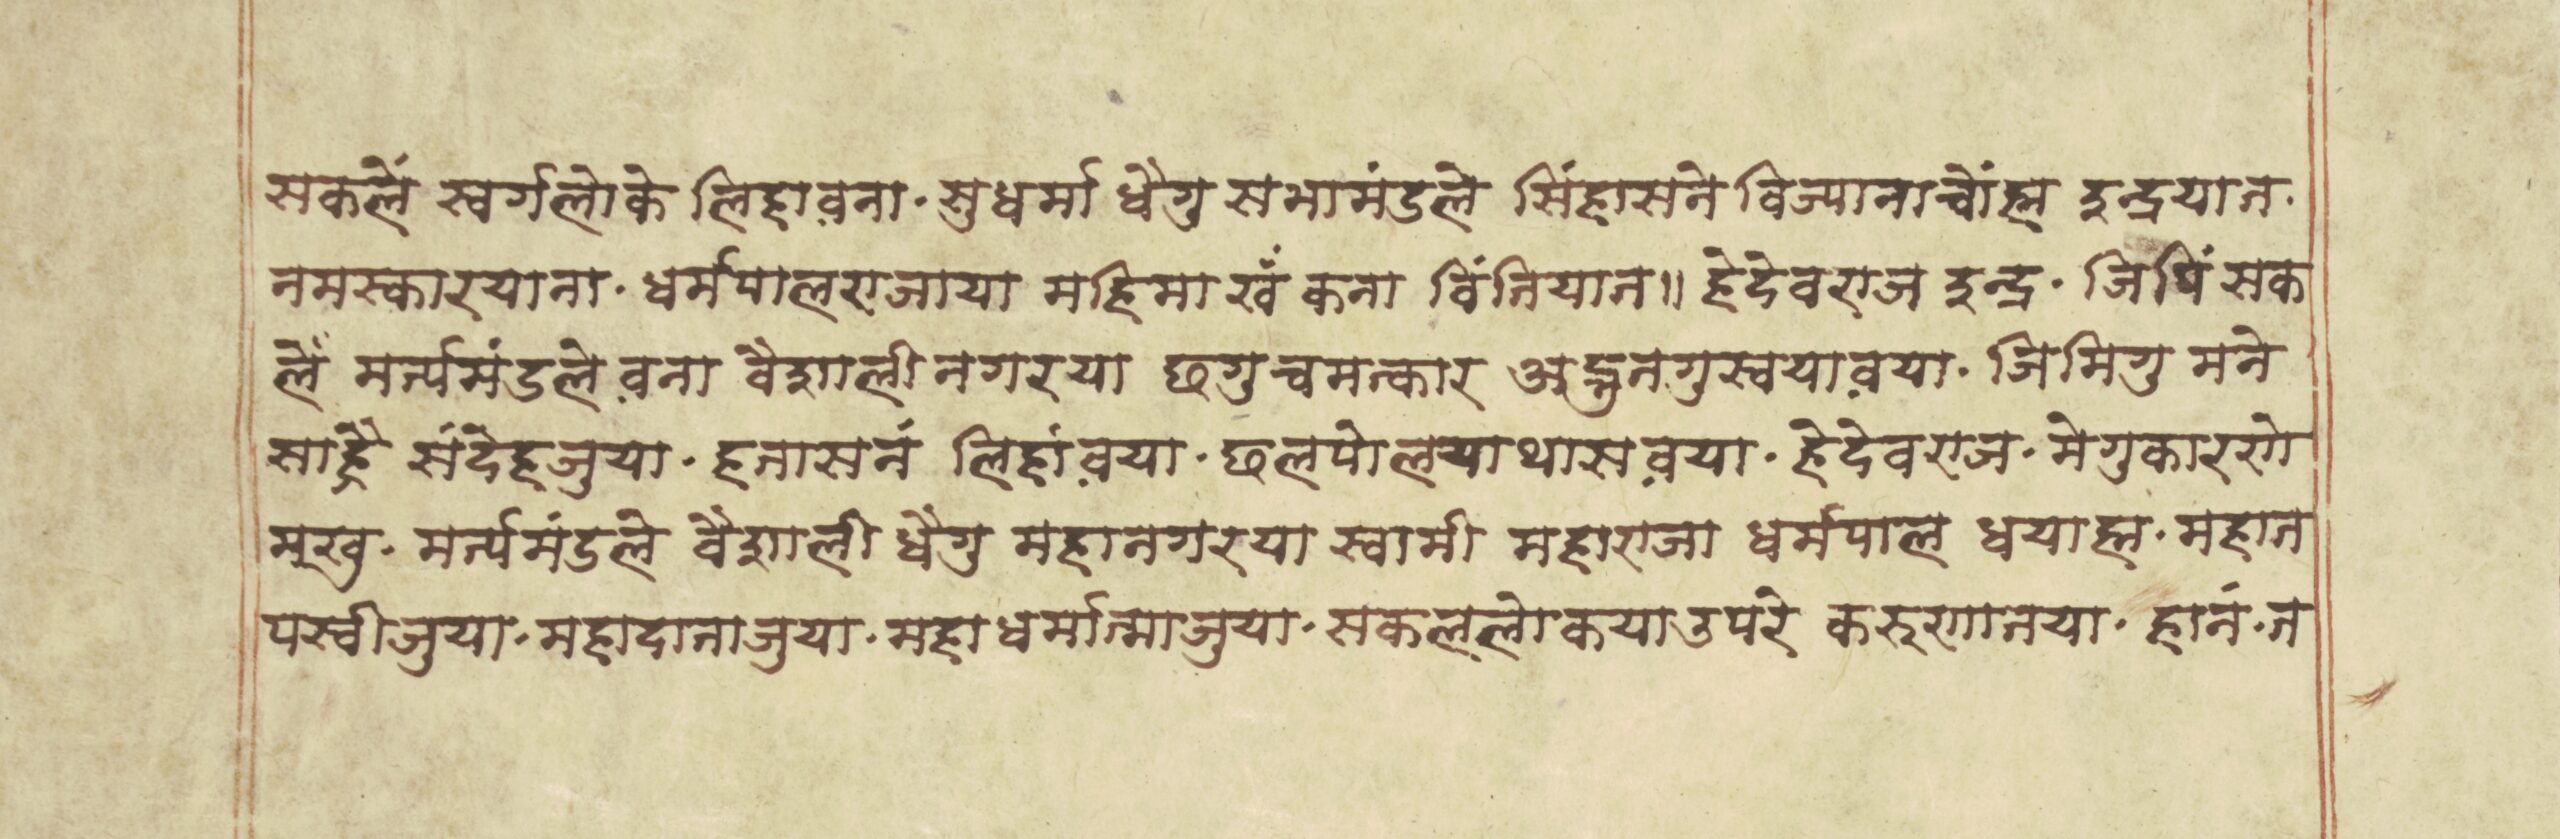 सकलें स्वर्गलोके लिहाव़ना· सुधर्मा धैगु सभामंडले सिंहासने विज्यानाच्वोंह्म इन्द्रयात·
नमस्कारयाना· धर्मपालराजाया महिमा खँ कना विंतियात॥ हेदेवराज इन्द्र· जिपिं सक
लें मर्त्यमंडले व़ना वैशाली नगरया छगु चमत्कार अद्भुतगुस्वयाव़या· जिमिगु मने
साह्रै संदेहजुया· हतासनं लिहांव़या· छलपोलयाथासव़या· हेदेवराज· मेगुकारणे
मखु· मर्त्यमंडले वैशाली धैगु महानगरया स्वामी महाराजा धर्मपाल धयाह्म· महात
पस्वीजुया· महादाताजुया· महाधर्मात्माजुया· सकल्लोकयाउपरे करुणातया· हानं· त